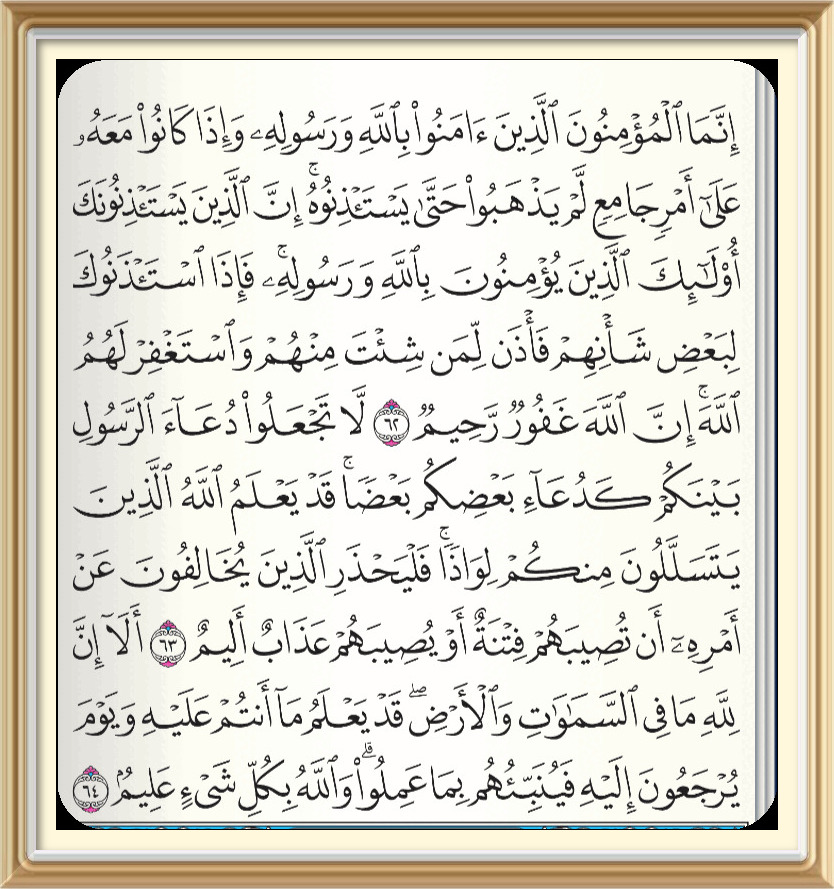 إِنَّمَا ٱلْمُؤْمِنُونَ ٱلَّذِينَ ءَامَنُوا۟ بِٱللَّهِ وَرَسُولِهِۦ وَإِذَا كَانُوا۟ مَعَهُۥ
عَلَىٰٓ أَمْرٍ جَامِعٍ لَّمْ يَذْهَبُوا۟ حَتَّىٰ يَسْتَـْٔذِنُوهُ ۚ إِنَّ ٱلَّذِينَ يَسْتَـْٔذِنُونَكَ
أُو۟لَـٰٓئِكَ ٱلَّذِينَ يُؤْمِنُونَ بِٱللَّهِ وَرَسُولِهِۦ ۚ فَإِذَا ٱسْتَـْٔذَنُوكَ
لِبَعْضِ شَأْنِهِمْ فَأْذَن لِّمَن شِئْتَ مِنْهُمْ وَٱسْتَغْفِرْ لَهُمُ
ٱللَّهَ ۚ إِنَّ ٱللَّهَ غَفُورٌ رَّحِيمٌ ٦٢ لَّا تَجْعَلُوا۟ دُعَآءَ ٱلرَّسُولِ
بَيْنَكُمْ كَدُعَآءِ بَعْضِكُم بَعْضًا ۚ قَدْ يَعْلَمُ ٱللَّهُ ٱلَّذِينَ
يَتَسَلَّلُونَ مِنكُمْ لِوَاذًا ۚ فَلْيَحْذَرِ ٱلَّذِينَ يُخَالِفُونَ عَنْ
أَمْرِهِۦٓ أَن تُصِيبَهُمْ فِتْنَةٌ أَوْ يُصِيبَهُمْ عَذَابٌ أَلِيمٌ ٦٣ أَلَآ إِنَّ
لِلَّهِ مَا فِى ٱلسَّمَـٰوَٰتِ وَٱلْأَرْضِ ۖ قَدْ يَعْلَمُ مَآ أَنتُمْ عَلَيْهِ وَيَوْمَ
يُرْجَعُونَ إِلَيْهِ فَيُنَبِّئُهُم بِمَا عَمِلُوا۟ ۗ وَٱللَّهُ بِكُلِّ شَىْءٍ عَلِيمٌۢ ٦٤